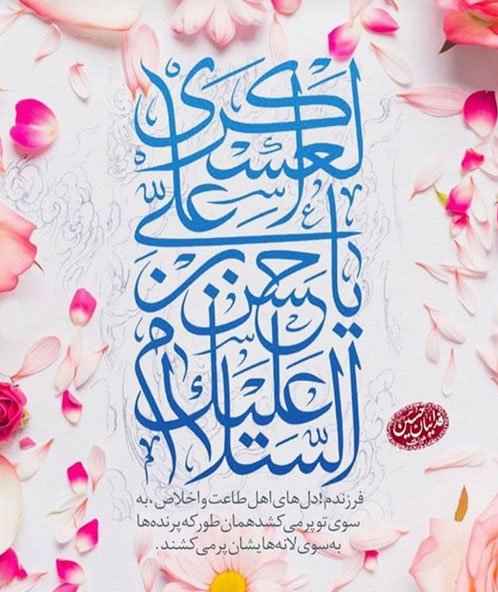 السلام علیک
یا حسن بن
علی
العسکری
فرزندم!دل‌های اهل طاعت و اخلاص ،به
سوی تو پر می‌کشد همان طور که پرنده‌ها
به سوی لانه‌هایشان پر می‌کشند.